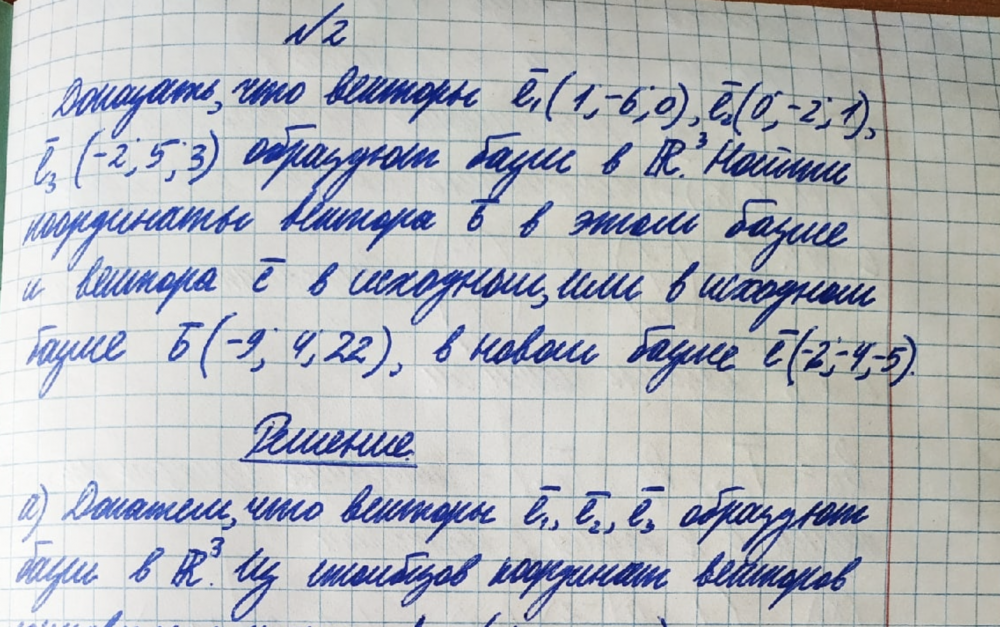 №2
Доказать, что векторы ē₁(1;-6;0), ē₂(0;-2;1),
ē₃(-2;5;3) образуют базис в ℝ³. Найти
координаты вектора b̄ в этом базисе
и вектора c̄ в исходном, или в исходном
базисе b̄(-9; 4; 22), в новом базисе c̄(-2;-4;-5).
Решение.
а) Докажем, что векторы ē₁, ē₂, ē₃ образуют
базис в ℝ³. Из столбцов координат векторов